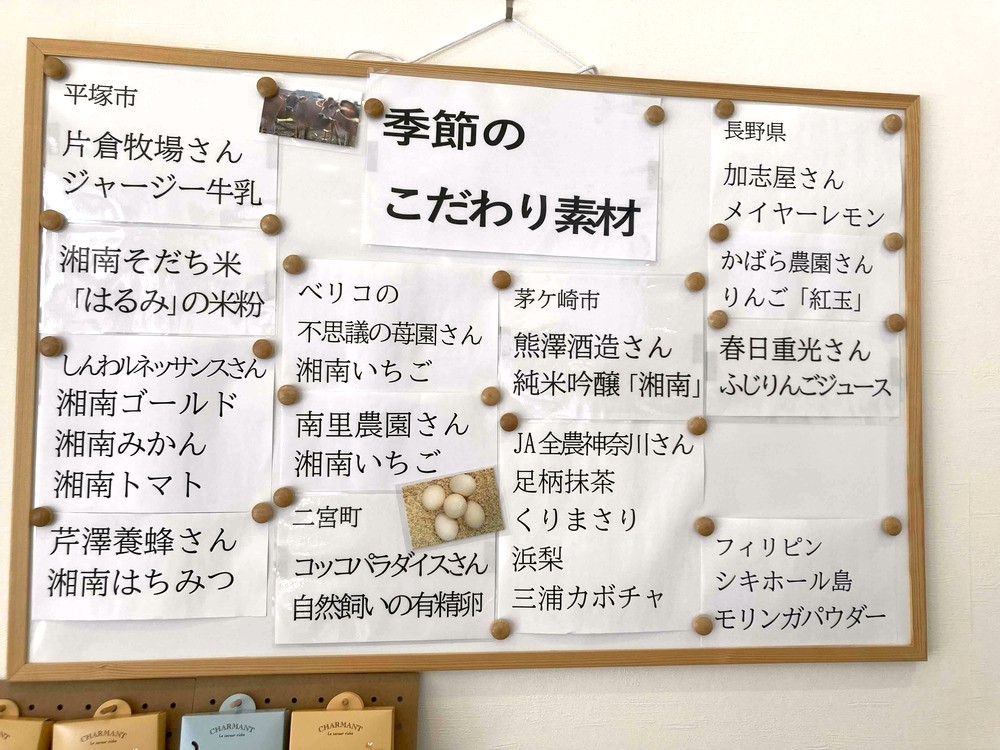 季節の
こだわり素材
平塚市
片倉牧場さん
ジャージー牛乳
湘南そだち米
「はるみ」の米粉
しんわルネッサンスさん
湘南ゴールド
湘南みかん
湘南トマト
芹澤養蜂さん
湘南はちみつ
ベリコの
不思議の苺園さん
湘南いちご
南里農園さん
湘南いちご
二宮町
コッコパラダイスさん
自然飼いの有精卵
茅ケ崎市
熊澤酒造さん
純米吟醸「湘南」
JA全農神奈川さん
足柄抹茶
くりまさり
浜梨
三浦カボチャ
長野県
加志屋さん
メイヤーレモン
かばら農園さん
りんご「紅玉」
春日重光さん
ふじりんごジュース
フィリピン
シキホール島
モリンガパウダー
CHARMANT
CHARMANT
CHARMANT